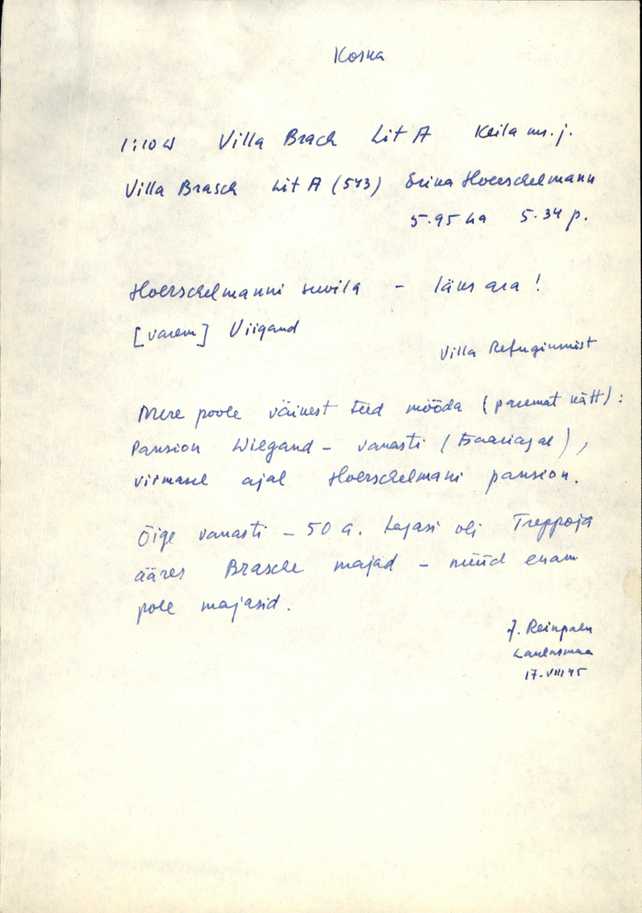 Koska
1:10 W Villa Brach Lit A Keila m. j.
Villa Brasch Lit A (543) Erika Hoerschelmann
5.95 ha 5.34 p.
Hoerschelmanni suvila - läks ära!
[varem] Viigand
Villa Refugiumist
Mere poole väikest teed mööda (paremat kätt):
Pansion Wiegand - vanasti (tsaariajal),
viimasel ajal Hoerschelmani pansion.
Õige vanasti - 50 a. tagasi oli Treppoja
ääres Brasche majad - nüüd enam
pole majasid.
J. Reinpalu
Laulasmaa
17. VIII 75